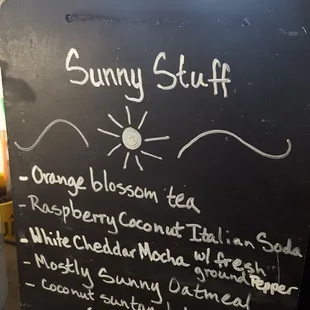 Sunny Stuff
- Orange blossom tea
- Raspberry Coconut Italian Soda
- White Cheddar Mocha w/ fresh
ground Pepper
- Mostly Sunny Oatmeal
- coconut